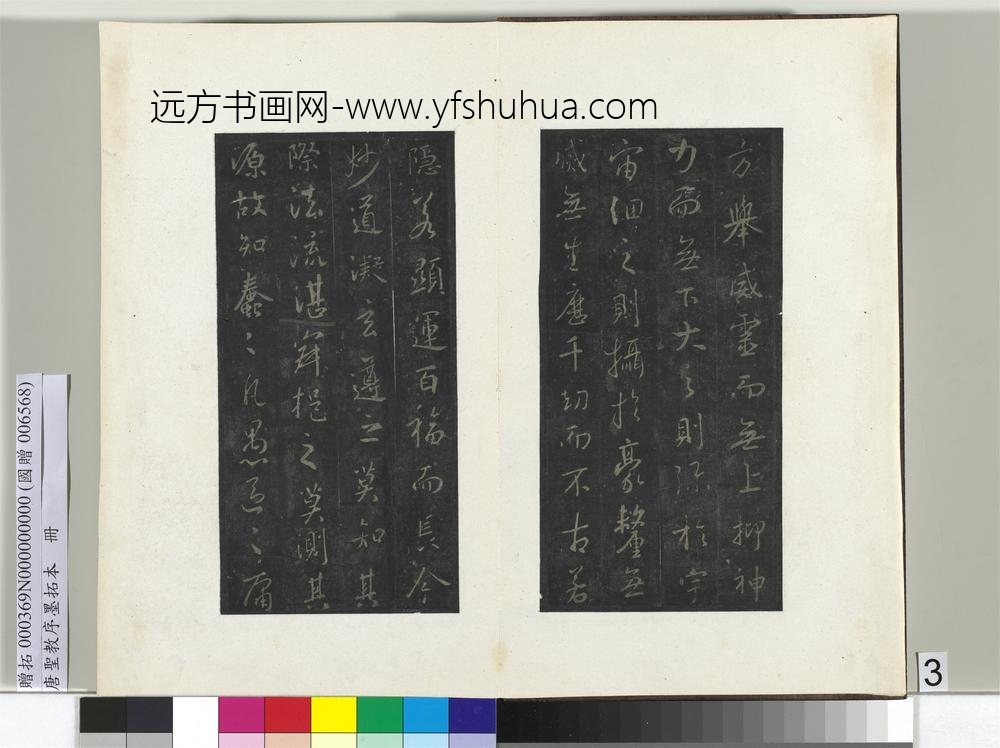 远方书画网-www.yfshuhua.com
方舉威靈而無上抑神
力而無下大之則彌於宇
宙細之則攝於豪釐無
滅無生歷千劫而不古若
隱若顯運百福而長今
妙道凝玄遵之莫知其
際法流湛寂挹之莫測其
源故知蠢〻凡愚區〻庸
贈拓 000369N000000000 (國贈 006568)
唐聖教序墨拓本 冊
3